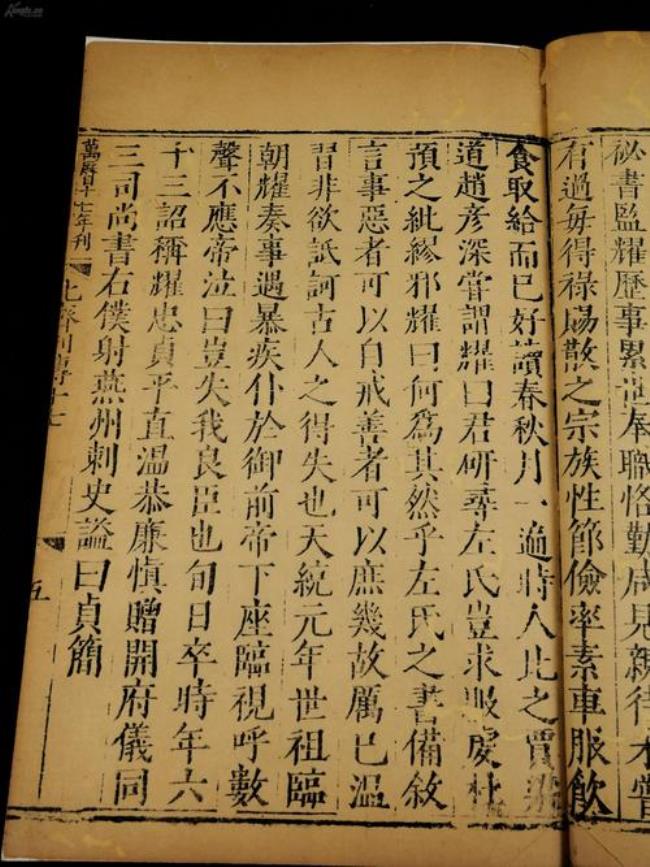 秘書監耀歷事累世奉職恪勤咸見親待未嘗
有過每得祿賜散之宗族性節儉率素車服飲
食取給而已好讀春秋月一遍時人比之賈梁
道趙彥深嘗謂耀曰君研尋左氏豈求服虔杜
預之紕繆邪耀曰何爲其然乎左氏之書備敘
言事惡者可以自戒善者可以庶幾故厲已温
習非欲詆訶古人之得失也天統元年世祖臨
朝耀奏事遇暴疾仆於御前帝下座臨視呼數
聲不應帝泣曰豈失我良臣也旬日卒時年六
十三詔稱耀忠貞平直温恭廉慎贈開府儀同
三司尚書右僕射燕州刺史謚曰貞簡
萬曆十七年刊
北齊列傳十七
五